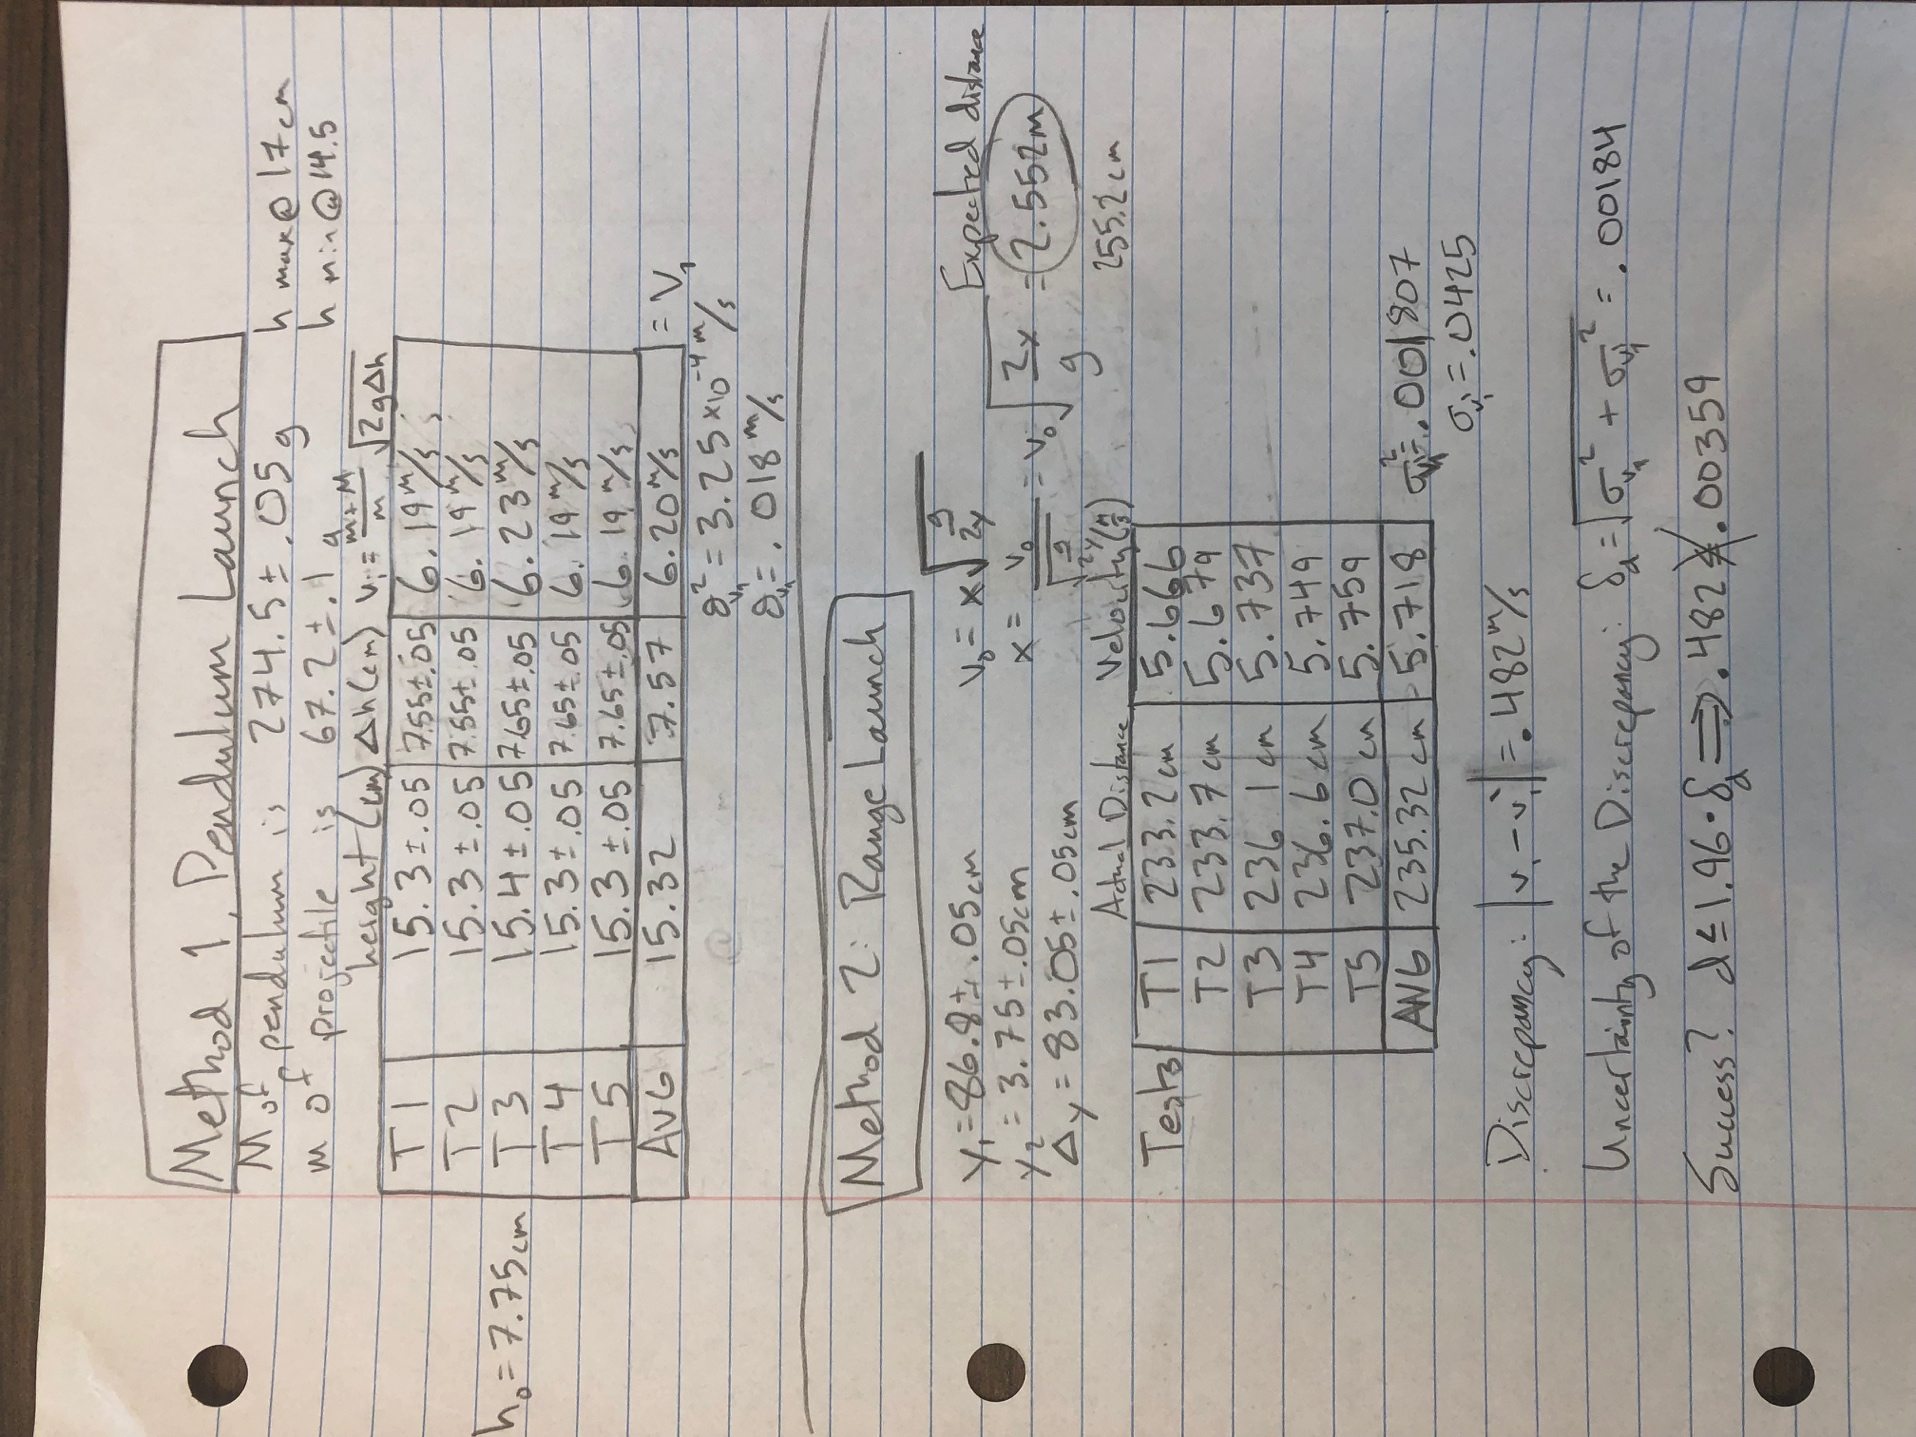 Method 1, Pendulum Launch
M of pendulum is 274.5 ± .05 g h max@17cm
m of projectile is 67.2 ± .1 g h min@14.5
height(cm) Δh(cm) v₁ = m+M/m √2gΔh
T1 15.3±.05 7.55±.05 6.19 m/s
T2 15.3±.05 7.55±.05 6.19 m/s
h₀ = 7.75cm T3 15.4±.05 7.65±.05 6.23 m/s
T4 15.3±.05 7.65±.05 6.19 m/s
T5 15.3±.05 7.65±.05 6.19 m/s
AVG 15.32 7.57 6.20 m/s = V₁
σ²v₁ = 3.25 x10⁻⁴ m/s
σv₁ = .018 m/s
Method 2: Range Launch
Y₁ = 86.8±.05cm V₀ = x√g/2y Expected distance
Y₂ = 3.75±.05cm x = v₀/√g/2y = v₀√2y/g = 2.552m
Δy = 83.05±.05cm 255.2 cm
Actual Distance Velocity (m/s)
Tests T1 233.2 cm 5.666
T2 233.7 cm 5.679
T3 236.1 cm 5.737
T4 236.6 cm 5.749
T5 237.0 cm 5.759
AVG 235.32 cm 5.718 σ²v₁' = .001807
σv₁' = .0425
Discrepancy: |v₁ - v₁'| = .482 m/s
Uncertainty of the Discrepancy: δd = √σv₁² + σv₁'² = .00184
Success? d ≤ 1.96 · δd ⟹ .482 ≰ .00359